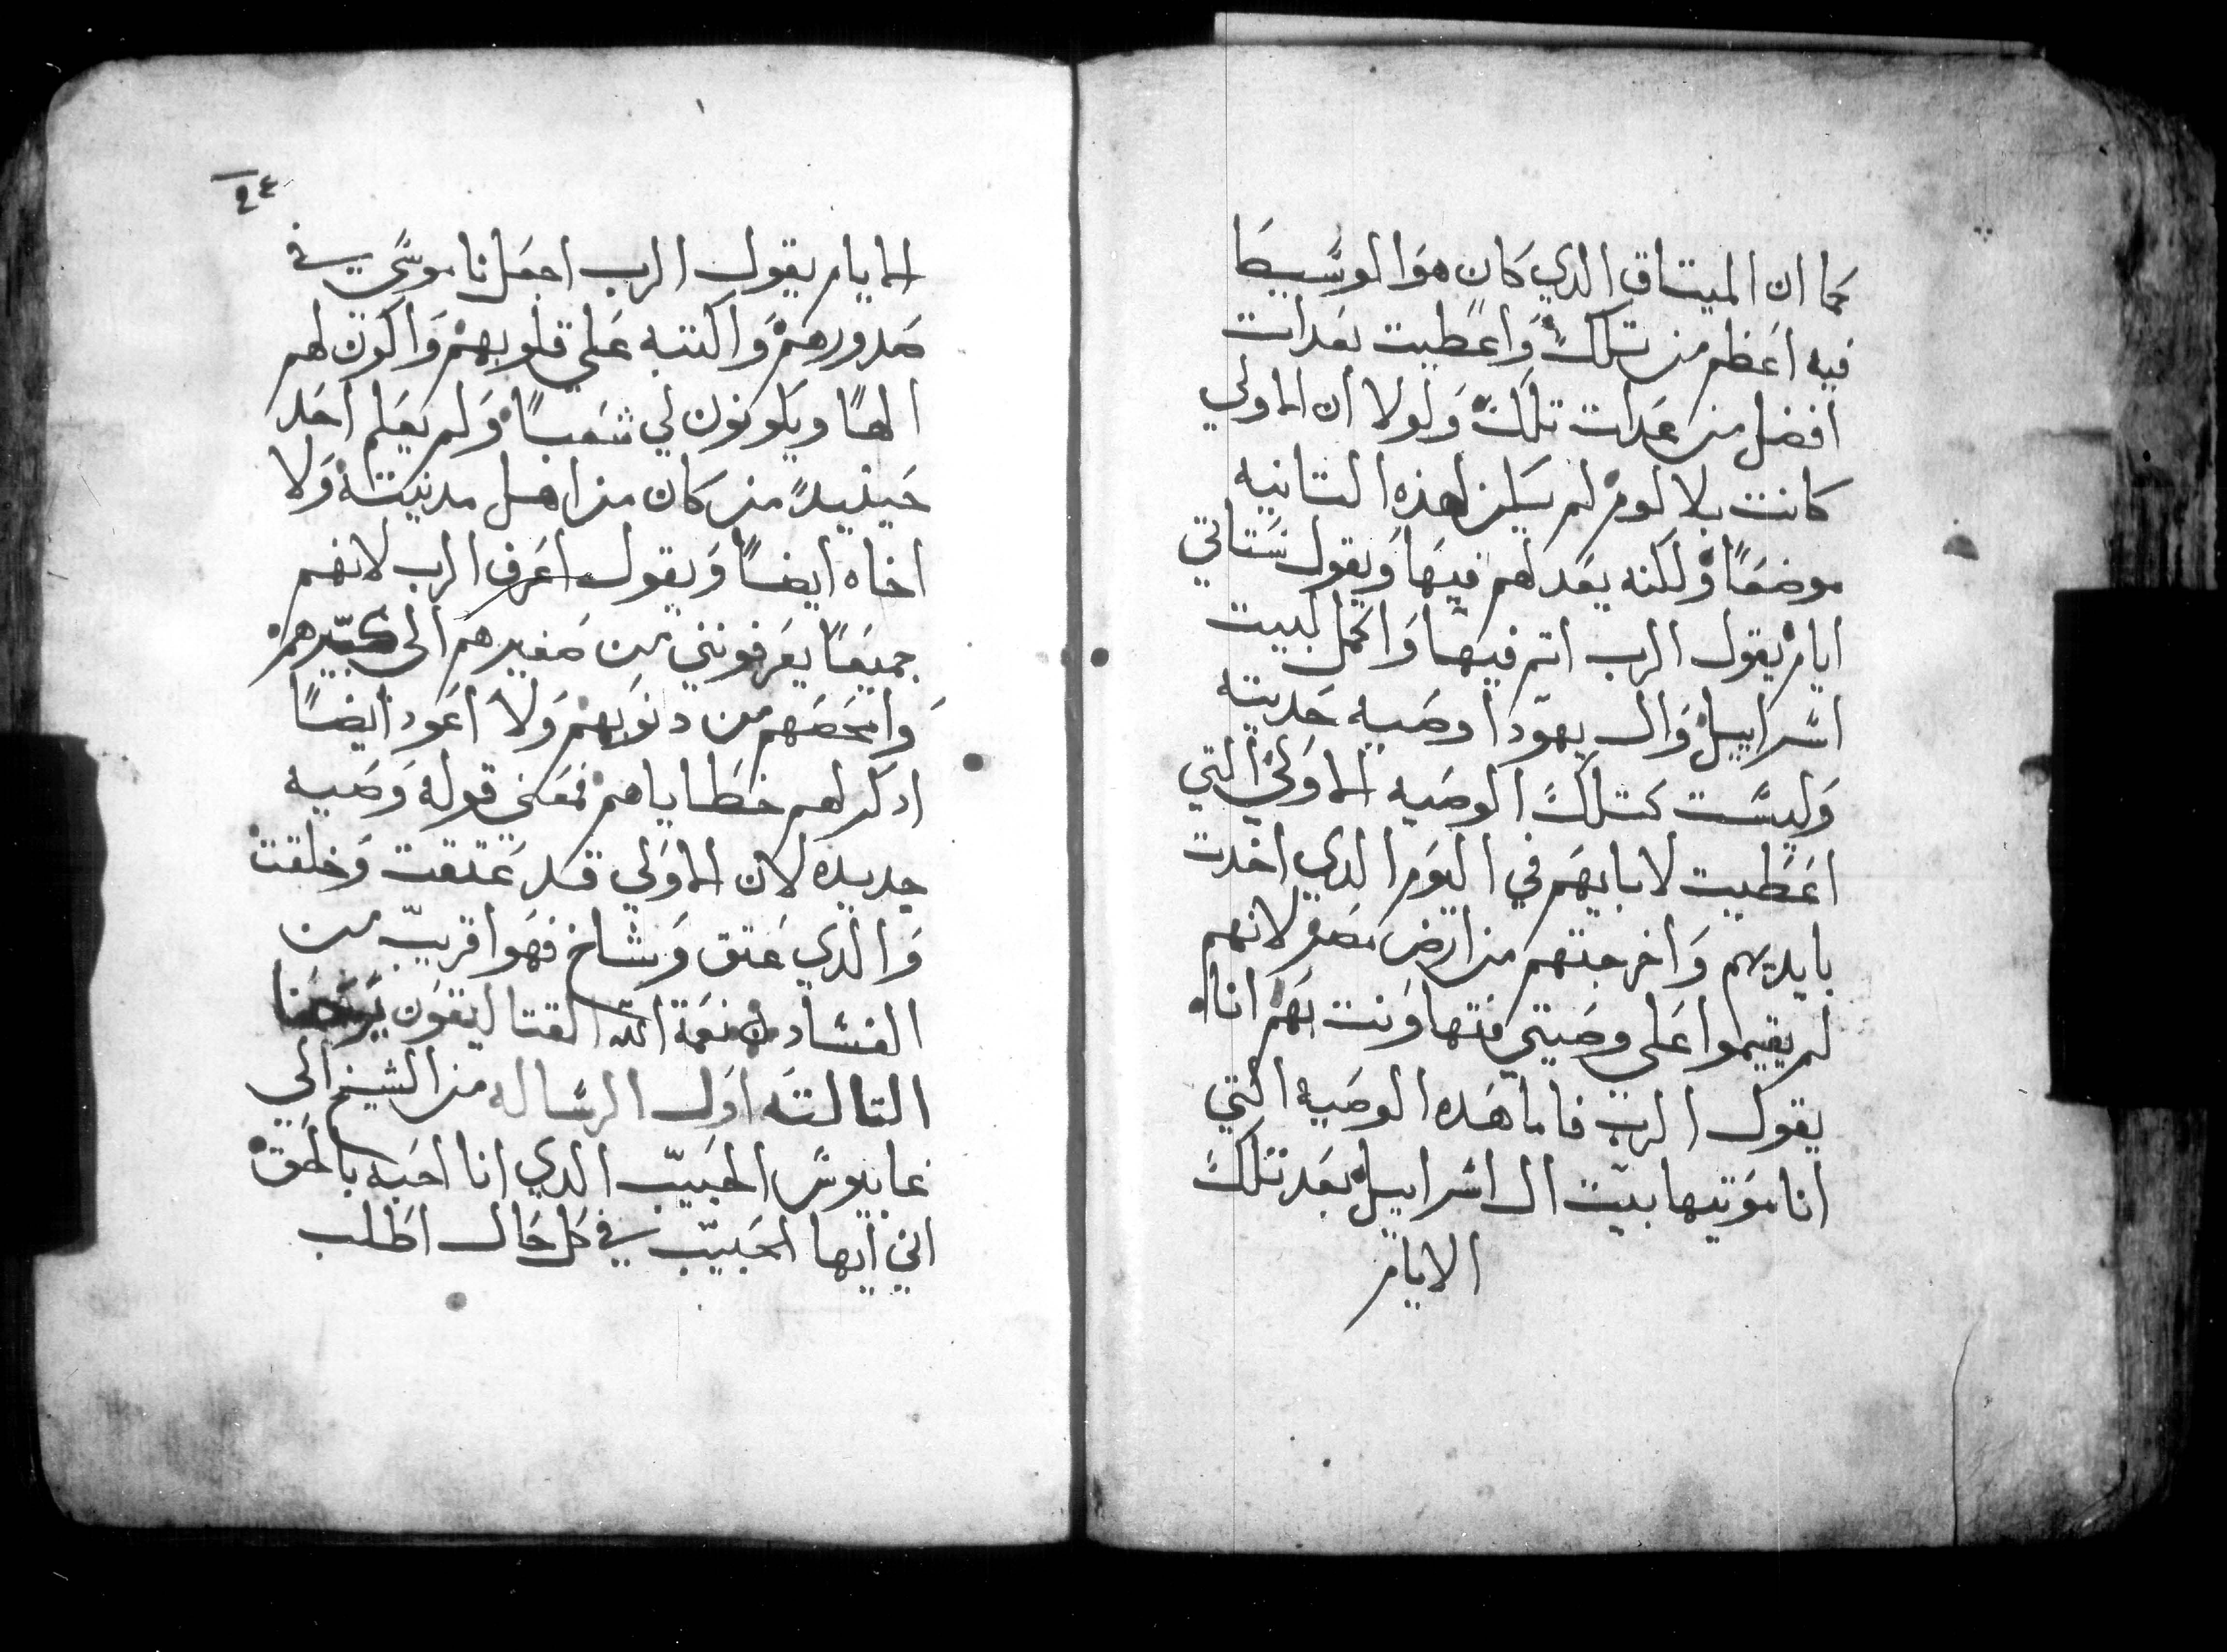 كما ان الميتاق الدي كان هوا لوسيطا
فيه اعظم من تلك واعطيت بعدات
افضل من عدات تلك ولولا ان الاولي
كانت بلا لوم لم يكن لهذه التانيه
موضعا ولكنه يعد لهم فيها ويقول ستاتي
ايام يقول الرب اتم فيها واكمل لبيت
اسراييل وال يهودا وصيه حديته
وليست كتلك الوصيه الاولي التي
اعطيت لابايهم في اليوم الدي اخدت
بايديهم واخرجتهم من ارض مصر لانهم
لم يقيموا على وصيتي فتهاونت بهم انا
يقول الرب فاما هده الوصيه التي
انا موتيها بيت ال اسراييل بعد تلك
الايام
٢٤
الايام يقول الرب اجعل ناموسي في
صدورهم واكتبه على قلوبهم واكون لهم
الها ويكونون لي شعبا ولم يعلم احد
حينيد من كان من اهل مدنيته ولا
اخاه ايضا ويقول اعرف الرب لانهم
جميعا يعرفونني من صغيرهم الى كبيرهم
وامحصهم من دنوبهم ولا اعود ايضا
ادكر لهم خطاياهم فمعنى قوله وصيه
جديده لان الاولي قد عتقت وخلقت
والدي عتق وشاخ فهوا قريب من
الفساد من نعمة الله القتاليقون
التالته اول الرساله من الشيخ الي
غاييوس الحبيب الدي انا احبه بالحق
اني ايها الحبيب في كل حال اطلب